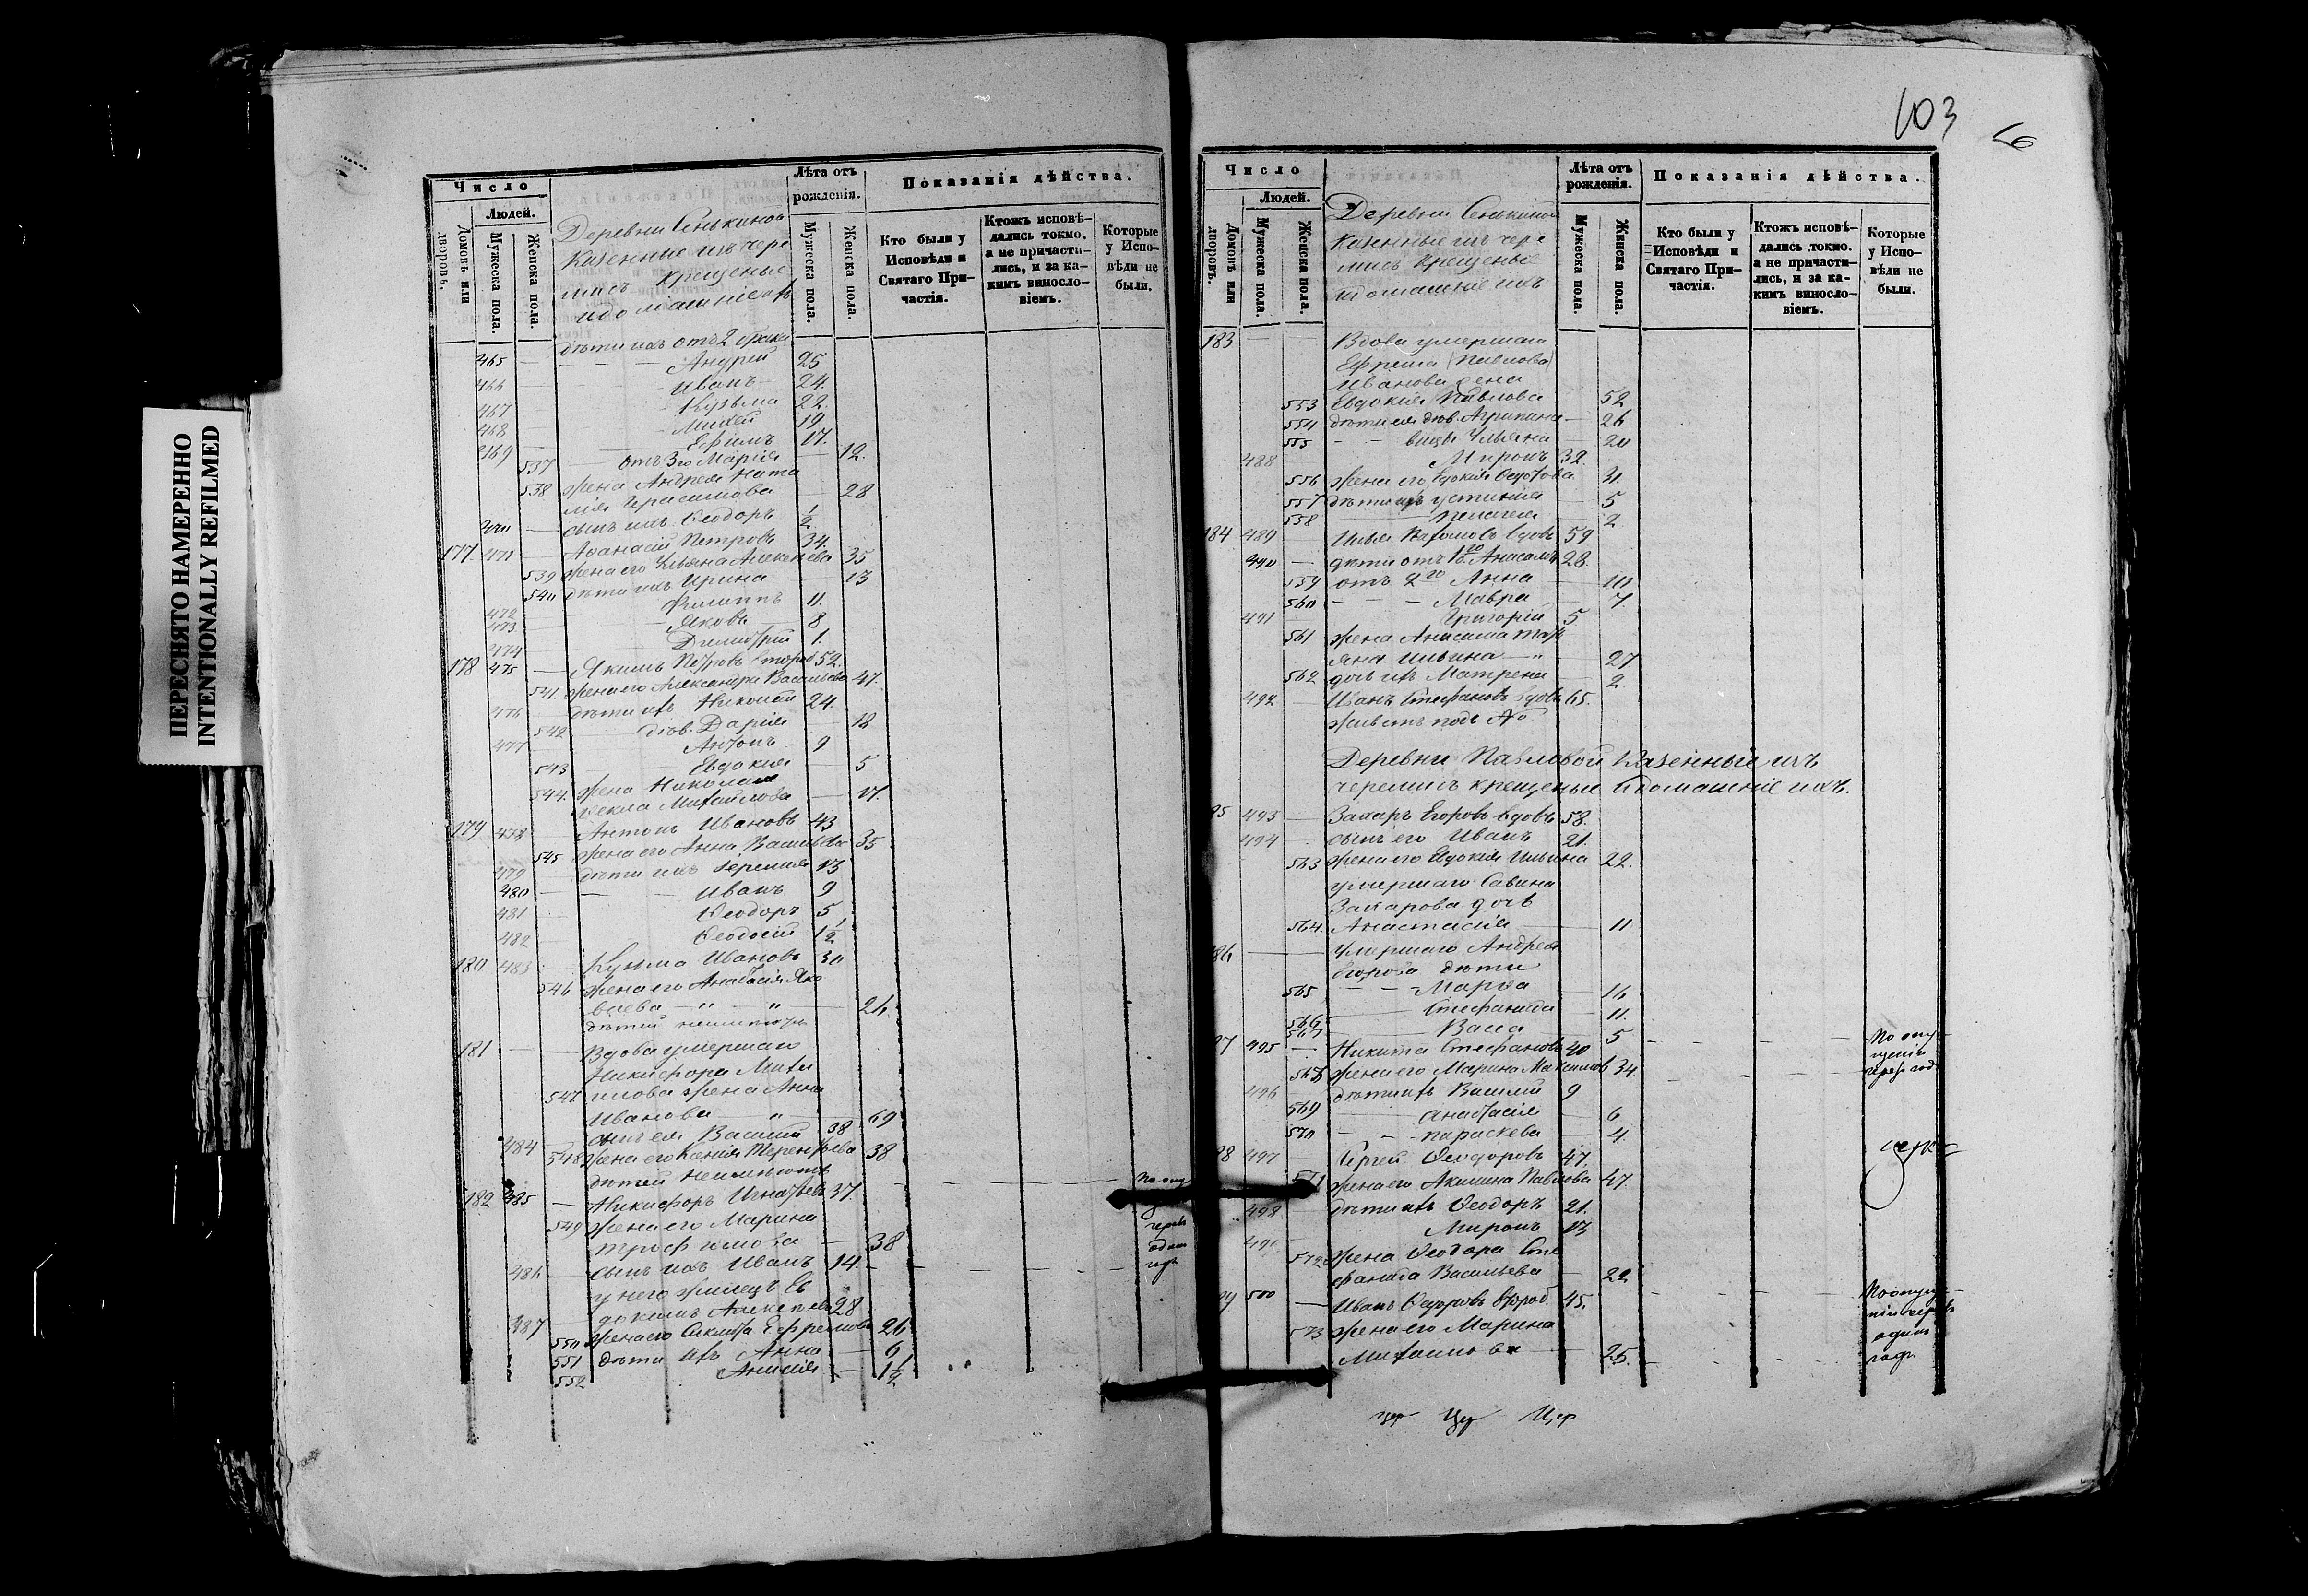 103
ПЕРЕСНЯТО НАМЕРЕННО
INTENTIONALLY REFILMED
Число
Людей.
Домовъ или дворовъ.
Мужеска пола.
Женска пола.
Деревни Сенькиной
Казенные изъ чере
мисъ крещеные
и домашніе ихъ
Лѣта отъ рожденія.
Мужеска пола.
Женска пола.
Показанія дѣйства.
Кто были у Исповѣди и Святаго Причастія.
Ктожъ исповѣдались токмо, а не причастились, и за какимъ винословіемъ.
Которые у Исповѣди не были.
дѣти ихъ отъ 2 брака
465 — Андрей 25
466 Иванъ 24
467 Кузьма 22
468 Михей 19
469 Ефимъ 17.
537 отъ 3го Марія — 12.
538 жена Андрея Ната
лія Герасимова — 28
470 — сынъ ихъ Ѳеодоръ ½
177 471 Аѳанасій Петровъ 34.
539 жена его Ульяна Алексѣева 35
540 дѣти ихъ Ирина — 13
472 Филиппъ 11.
473 Яковъ 8
474 Димитрій 1.
178 475 — Якимъ Петровъ второб 52.
541. жена его Александра Васильева 47.
476 дѣти ихъ Николай 24
542 дѣв. Дарія — 18
477 Антонъ 9
543 Евдокия — 5
544. жена Николая
Ѳекла Михайлова — 17.
179 478 Антонъ Ивановъ 43
545 жена его Анна Васильева 35
479 дѣти ихъ Іеремия 13
480 — Иванъ 9
481 Ѳеодоръ 5
482 Ѳеодосій 1½
180 483 Кузьма Ивановъ 30
546 жена его Анастасія Яко
влева — " — " 26.
дѣтей неимѣютъ
181 — — Вдова умершаго
Никифора Михаи
547 лова жена Анна
Иванова — " — 69
484 сынъ ея Василий 38
548 жена его Ксенія Терентьева 38
дѣтей неимѣютъ
182 485 — Никифоръ Игнатьевъ 37.
549 жена его Марина
Трофимова — 38
486 — сынъ ихъ Иванъ 14.
у него жилецъ Ев
487 докимъ Алексѣевъ 28
550 жена его Ефремова 26
551 дѣти ихъ Анна — 6
552 Анисия — 1½
Число
Людей.
Домовъ или дворовъ.
Мужеска пола.
Женска пола.
Деревни Сенькиной
Казенные изъ чере
мисъ крещеные
и домашніе ихъ
Лѣта отъ рожденія.
Мужеска пола.
Женска пола.
Показанія дѣйства.
Кто были у Исповѣди и Святаго Причастія.
Ктожъ исповѣдались токмо, а не причастились, и за какимъ винословіемъ.
Которые у Исповѣди не были.
183 — — Вдова умершаго
Ефрема (Павлова)
Иванова жена
553 Евдокия Павлова 52
554 дѣти ея дѣв. Агрипина — 26
555 — — вицы Ульяна — 20
488 Миронъ 32.
556 жена его Евдокия Ѳедотова 31
557 дѣти ихъ Устиния — 5
558 Пелагея — 2
184 489 Илья Пахомовъ вдовъ 59
490 — дѣти отъ 1го Анисимъ 28.
559 отъ 2го Анна — 10
560 — — Мавра — 7.
491 Григорій 5
561 жена Анисима Тать
яна Ильина — " — 27
562 дочь ихъ Матрена — 2
492 — Иванъ Стефановъ вдовъ 65.
живетъ подъ №
Деревни Павловой Казенные изъ
черемисъ крещеные и домашніе ихъ.
493 Захаръ Егоровъ вдовъ 58.
494 сынъ его Иванъ 21.
563 жена его Евдокия Ильина 22.
умершаго Савина
Захарова дочь
564. Анастасія — 11
— — Умершаго Андрея
Егорова дѣти
565 — — Марѳа — 16
566 Стефанида — 11.
567 Васса — 5
495 Никита Стефановъ 40
568 жена его Марина Максимова 34.
496 дѣти ихъ Василий 9
569 — Анастасія — 6
570 — — Параскева — 4.
497 — Сергей Ѳеодоровъ 47.
571 жена его Акилина Павлова 47.
498 дѣти ихъ Ѳеодоръ 21.
Миронъ 13
572 жена Ѳеодора Сте
фанида Васильева — 22
500 — Иванъ Ѳедоровъ второб. 45.
573 жена его Марина
Михайлова — 25.